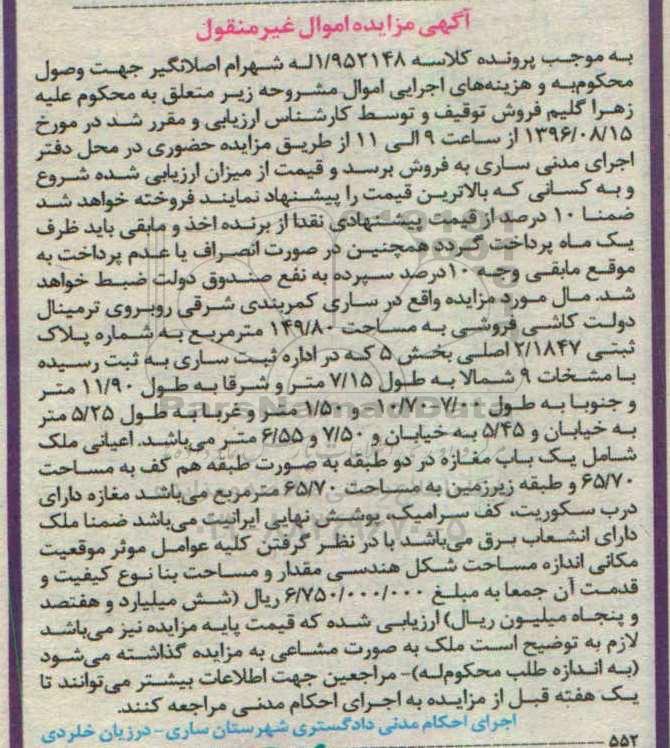 آگهی مزایده اموال غیرمنقول
به موجب پرونده کلاسه ۱/۹۵۲۱۴۸له شهرام اصلانگیر جهت وصول
محکوم‌به و هزینه‌های اجرایی اموال مشروحه زیر متعلق به محکوم علیه
زهرا گلیم فروش توقیف و توسط کارشناس ارزیابی و مقرر شد در مورخ
۱۳۹۶/۰۸/۱۵ از ساعت ۹ الی ۱۱ از طریق مزایده حضوری در محل دفتر
اجرای مدنی ساری به فروش برسد و قیمت از میزان ارزیابی شده شروع
و به کسانی که بالاترین قیمت را پیشنهاد نمایند فروخته خواهد شد
ضمنا ۱۰ درصد از قیمت پیشنهادی نقدا از برنده اخذ و مابقی باید ظرف
یک ماه پرداخت گردد همچنین در صورت انصراف یا عدم پرداخت به
موقع مابقی وجه ۱۰درصد سپرده به نفع صندوق دولت ضبط خواهد
شد. مال مورد مزایده واقع در ساری کمربندی شرقی روبروی ترمینال
دولت کاشی فروشی به مساحت ۱۴۹/۸۰ مترمربع به شماره پلاک
ثبتی ۲/۱۸۴۷اصلی بخش ۵ که در اداره ثبت ساری به ثبت رسیده
با مشخات ۹ شمالا به طول ۷/۱۵ متر و شرقا به طول ۱۱/۹۰ متر
و جنوبا به طول ۷/۰۰- ۱۰/۷۰ و ۱/۵۰ متر و غربا به طول ۵/۲۵ متر
به خیابان و ۵/۴۵ به خیابان و ۷/۵۰ و ۶/۵۵ متر می‌باشد. اعیانی ملک
شامل یک باب مغازه در دو طبقه به صورت طبقه هم کف به مساحت
۶۵/۷۰ و طبقه زیرزمین به مساحت ۶۵/۷۰ مترمربع می‌باشد مغازه دارای
درب سکوریت، کف سرامیک، پوشش نهایی ایرانیت می‌باشد ضمنا ملک
دارای انشعاب برق می‌باشد با در نظر گرفتن کلیه عوامل موثر موقعیت
مکانی اندازه مساحت شکل هندسی مقدار و مساحت بنا نوع کیفیت و
قدمت آن جمعا به مبلغ ۶/۷۵۰/۰۰۰/۰۰۰ ریال (شش میلیارد و هفتصد
و پنجاه میلیون ریال) ارزیابی شده که قیمت پایه مزایده نیز می‌باشد
لازم به توضیح است ملک به صورت مشاعی به مزایده گذاشته می‌شود
(به اندازه طلب محکوم‌له)- مراجعین جهت اطلاعات بیشتر می‌توانند تا
یک هفته قبل از مزایده به اجرای احکام مدنی مراجعه کنند.
اجرای احکام مدنی دادگستری شهرستان ساری- درزیان خلردی
۵۵۲
ParsNamadData